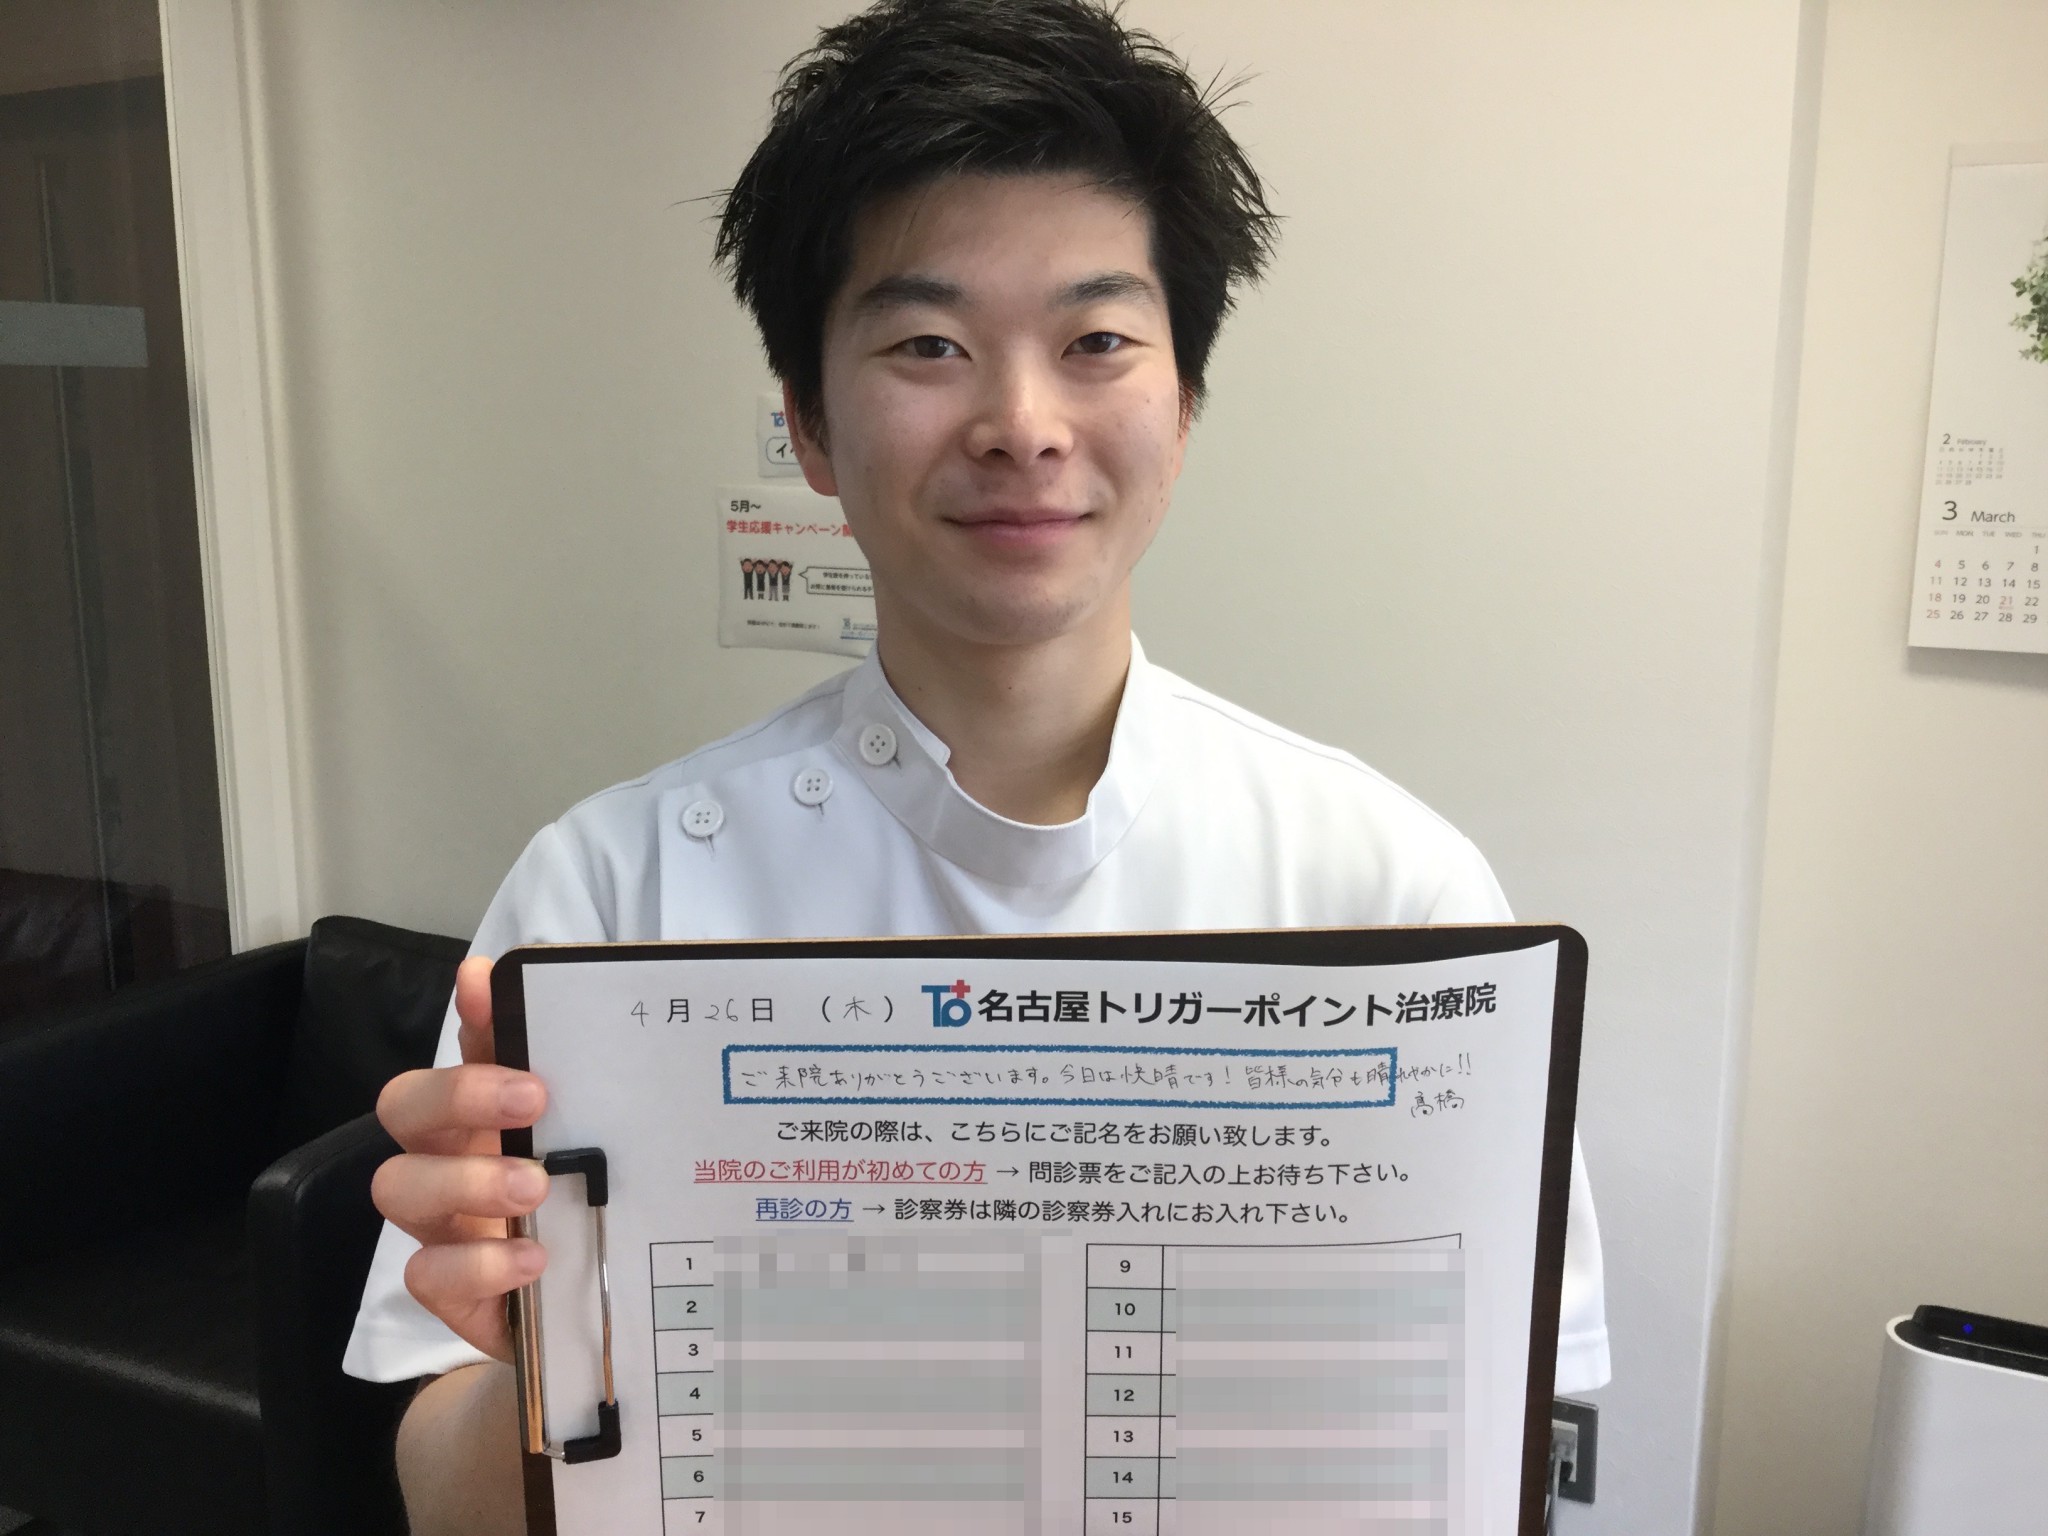 イベ
5月〜
学生応援キャンペーン
2 February
3 March
SUN MON TUE WED THU
1
4 5 6 7 8
11 12 13 14 15
18 19 20 21 22
25 26 27 28 29
4月26日 （木） 名古屋トリガーポイント治療院
ご来院ありがとうございます。今日は快晴です！皆様の気分も晴れやかに!!
髙橋
ご来院の際は、こちらにご記名をお願い致します。
当院のご利用が初めての方 → 問診票をご記入の上お待ち下さい。
再診の方 → 診察券は隣の診察券入れにお入れ下さい。
1 9
2 10
3 11
4 12
5 13
6 14
7 15